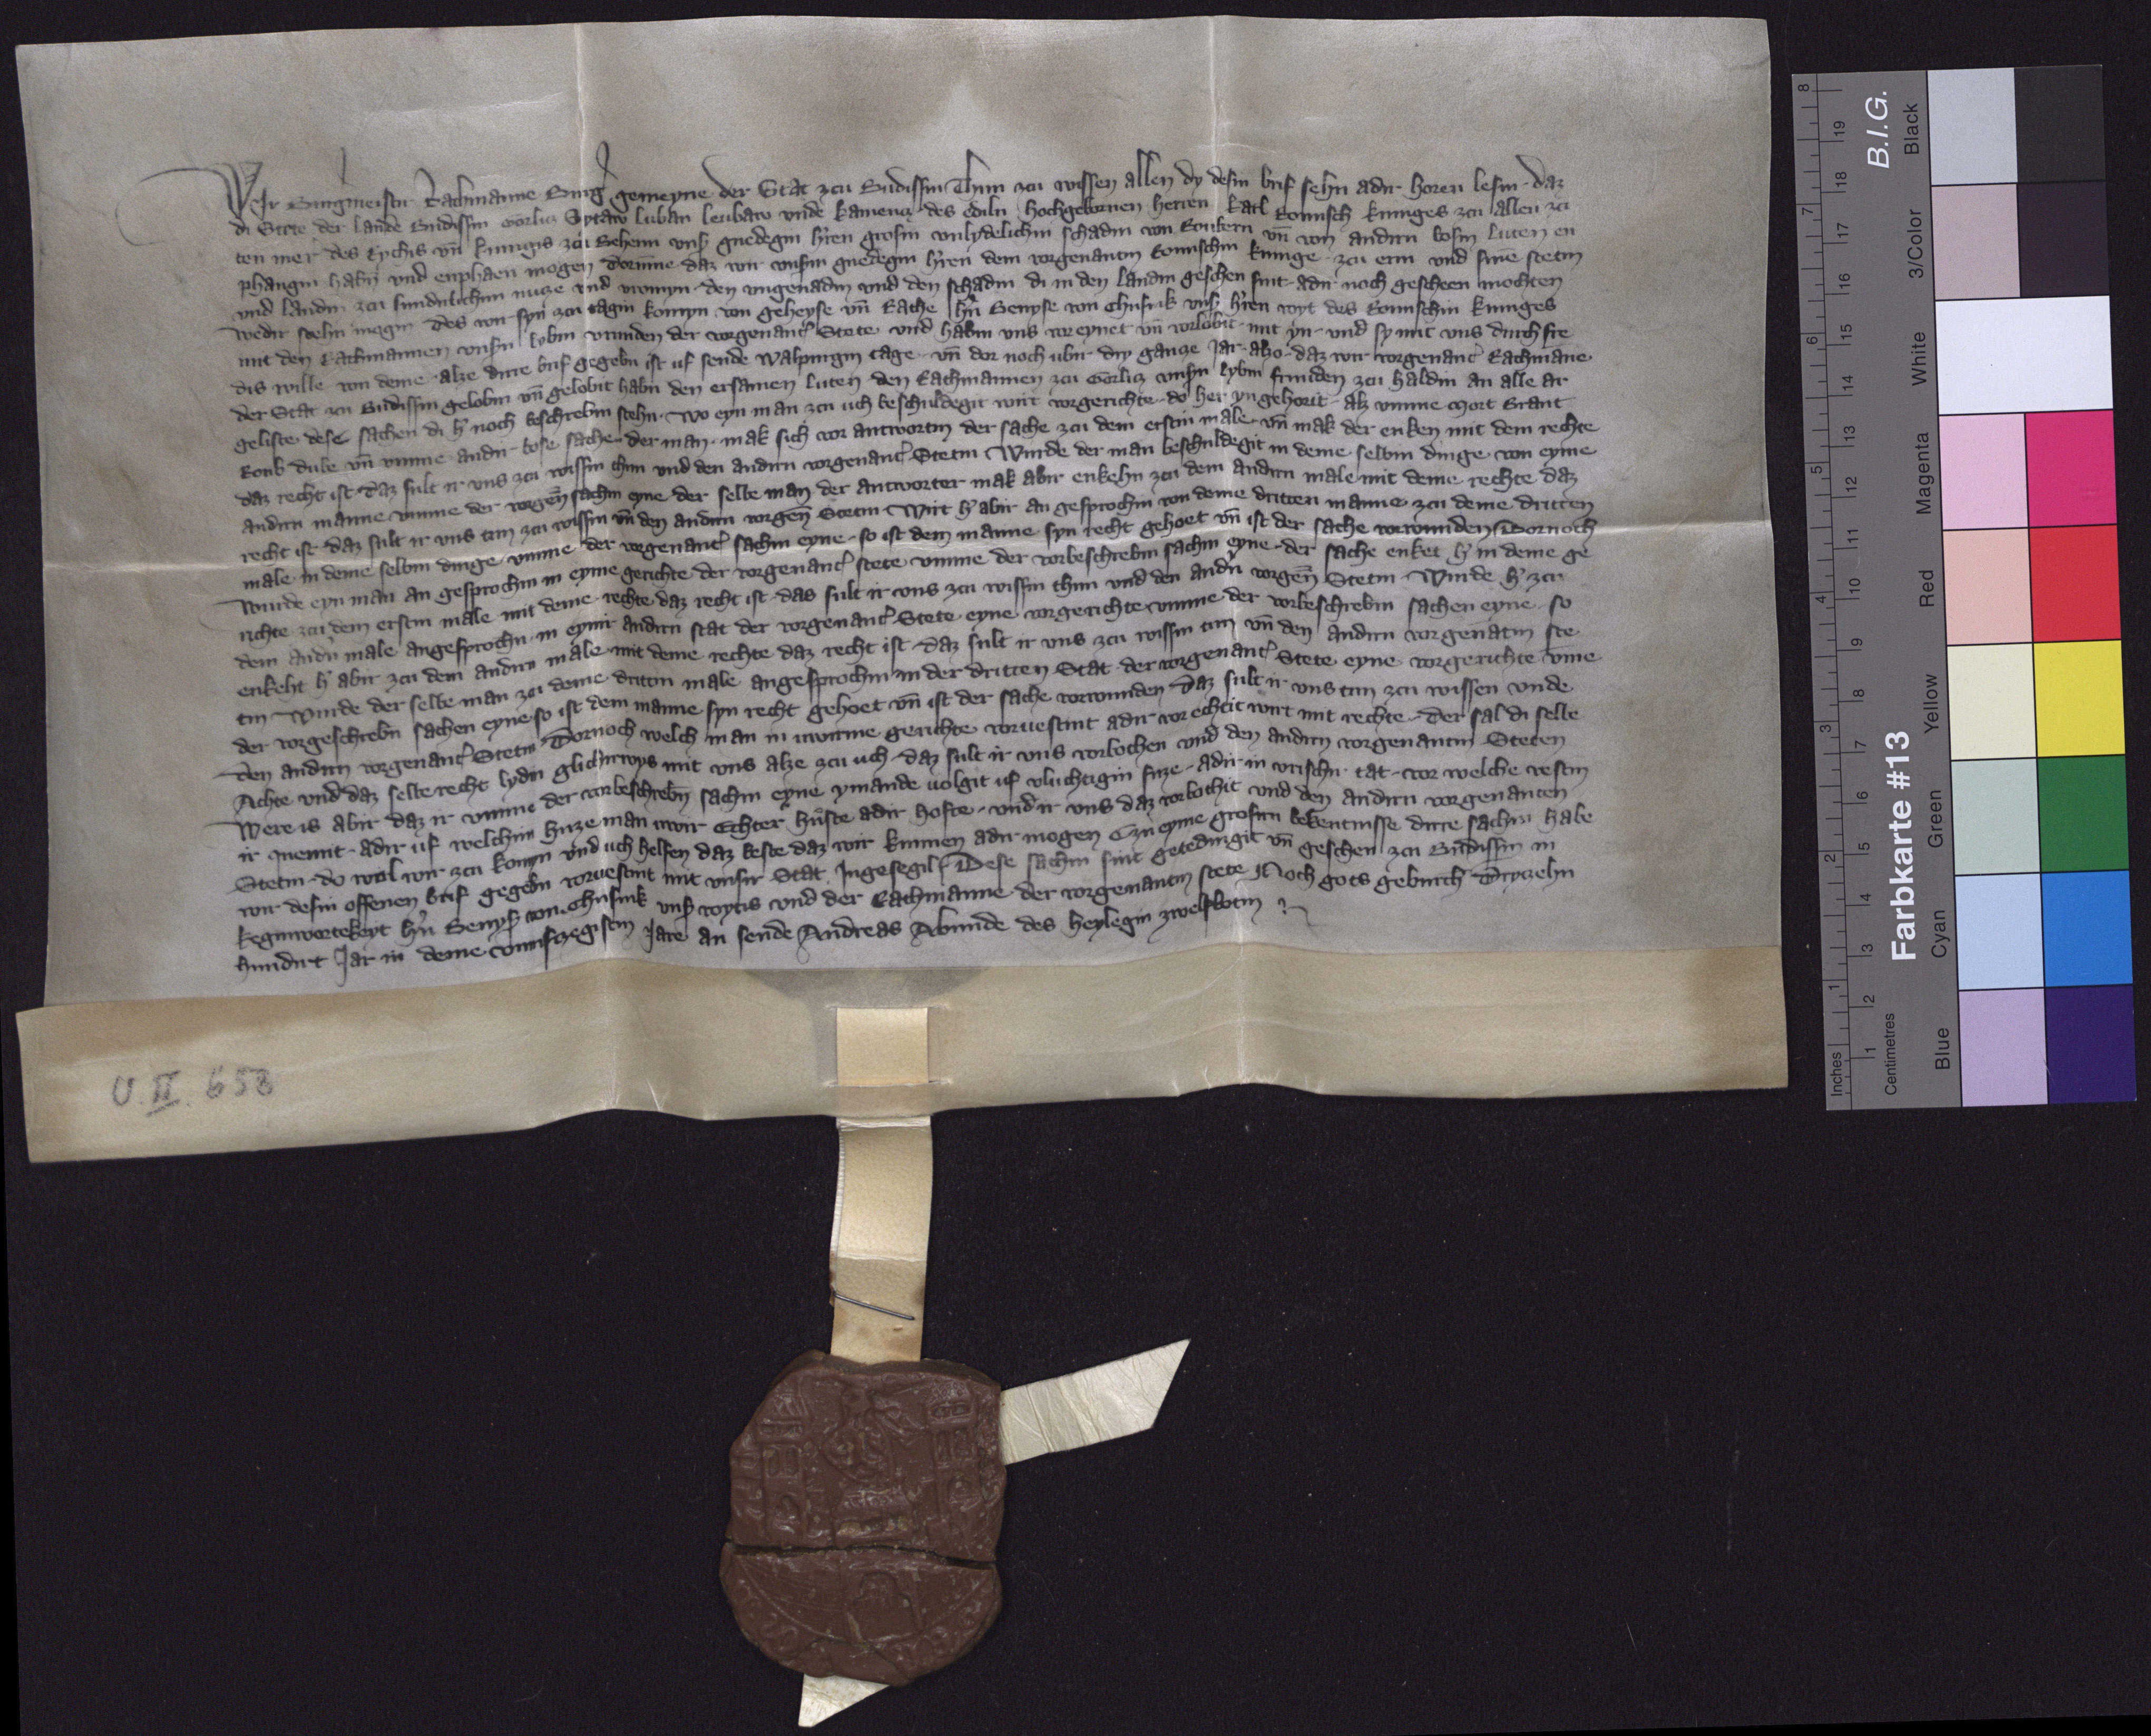 Wir Burgmeister Rachmanne Burg gemeyne der Stat zcu Budissin Thun zcu wissen allen dy desin brif sehn adir horen lesin daz
di Stete der lande Budissin Gorlicz Sytaw luban leubaw vnde kamencz des Ediln hochgebornen herren karl Romisch kuniges zcu allen zci
ten mer des Rychis vn kunigis zcu Behem vnß gnedegin hren grosin vnlydelichin schadin von Roubern vn von andirn bosin luten en
phangin habin vnd enphaen mogen Dorumme daz wir vnsim gnedegin hren dem vorgenantin Romischin kunige zcu ern vnd sine stetin
vnd landin zcu sundirlichim nucze vnd vromyn den vngenadin vnd den schadin di in den landin geschen sint adir noch gescheen mochten
wedir stehn mogin des wir syn zcu tagin komyn von geheyse vn Rathe hn Benyse von Chusnik vnß hren voyt des Romischin kuniges
mit den Rachmannen vnsirn lybin vrunden der vorgenant Stete vnd habin vns voreynet vn vorlobit mit yn vnd sy mit vns durch fre
dis wille von deme alze dirre brif gegebn ist uf sende walpurgin tage vn dor noch ubir dry gancze Jar also daz wir vorgenant Rachmane
der Stat zcu Budissin gelobin vn gelobit habin den ersamen luten den Rachmannen zcu Gorlicz vnsirn lybin frunden zcu haldin an alle ar
geliste dese sachen di h noch beschrebin stehn Wo eyn man zcu uch beschuldegit wirt vorgerichte do her yn gehorit alz vmme Mort Brant
Roub dube vn vmme andir bose sache der man mak sich vor antwortin der sache zcu dem erstin male vn mak der enken mit dem rechte
daz recht ist daz sult ir vns zcu wissin thun vnd den andirn vorgenant Stetin Wurde der man beschuldegit in deme selbin dinge von eyme
andirn manne vmme der vorgen sachin eyne der selbe man der antworter mak abir enkehn zcu dem andirn male mit deme rechte daz
recht ist daz sult ir vns tun zcu wissin vn den andirn vorgen Stetin Wirt h abir an gesprochin von deme dritten manne zcu deme dritten
male in deme selbin dinge vmme der vorgenant sachin eyne so ist dem manne syn recht gehoet vn ist der sache vorwunden Dornoch
Wurde eyn man an gesprochin in eyme gerichte der vorgenant stete vmme der vorbeschrebin sachin eyne der sache enket h in deme ge
richte zcu dem erstin male mit deme rechte daz recht ist das sult ir vns zcu wissin thun vnd den andirn vorgen Stetin Wurde h zcu
dem andirn male angesprochin in eynir andirn stat der vorgenant Stete eyne vorgerichte vmme der vorbeschrebin sachen eyne so
enkeht h abir zcu dem andirn male mit deme rechte daz recht ist daz sult ir vns zcu wissin tun vn den andirn vorgenatin ste
tin Wurde der selbe man zcu deme dritten male angesprochin in der dritten Stat der vorgenant Stete eyne vorgerichte vme
der vorgeschrebn sachen eyne so ist dem manne syn recht gehoet vn ist der sache vorwunden Daz sult ir vns tun zcu wissen vnde
den andirn vorgenant Stetin Dornoch welch man in uwirme gerichte vorvestint adir vor echtit wirt mit rechte der sal di selbe
Achte vnd daz selbe recht lydin glichirwys mit vns alze zcu uch daz sult ir vns vorbochen vnd den andirn vorgenantin Steten
Were is abir daz ir vmme der vorbeschrebn sachin eyne ymande volgit uf vluchtigin fuze adir in vrischir tat vor welche vestin
ir quemit adir uf welchim huze man uwir Echter huste adir hofte vnd ir vns daz vorbochit vnd den andirn vorgenanten
Stetin do wul wir zcu komyn vnd uch helfen daz beste daz wir kunnen adir mogen Czu eyme grosirn bekentnisse dirre sachin habe
wir desin offenen brif gegebn vorvestint mit vnsir Stat Ingesegil Dese sachin sint getedingit vn geschen zcu Budissin in
keginwortekeyt hn Benyß von Chusnik vnß voytis vnd der Rachmanne der vorgenantin stete Noch gots geburth Dryczehn
hundirt Jar in deme vumfczegistin Jare an sende Andreas Abunde des heylegin zwelfbotin
U. II. 653
Inches
Centimetres
Farbkarte #13
B.I.G.
Blue
Cyan
Green
Yellow
Red
Magenta
White
3/Color
Black
1 2 3 4 5 6 7 8
1 2 3 4 5 6 7 8 9 10 11 12 13 14 15 16 17 18 19